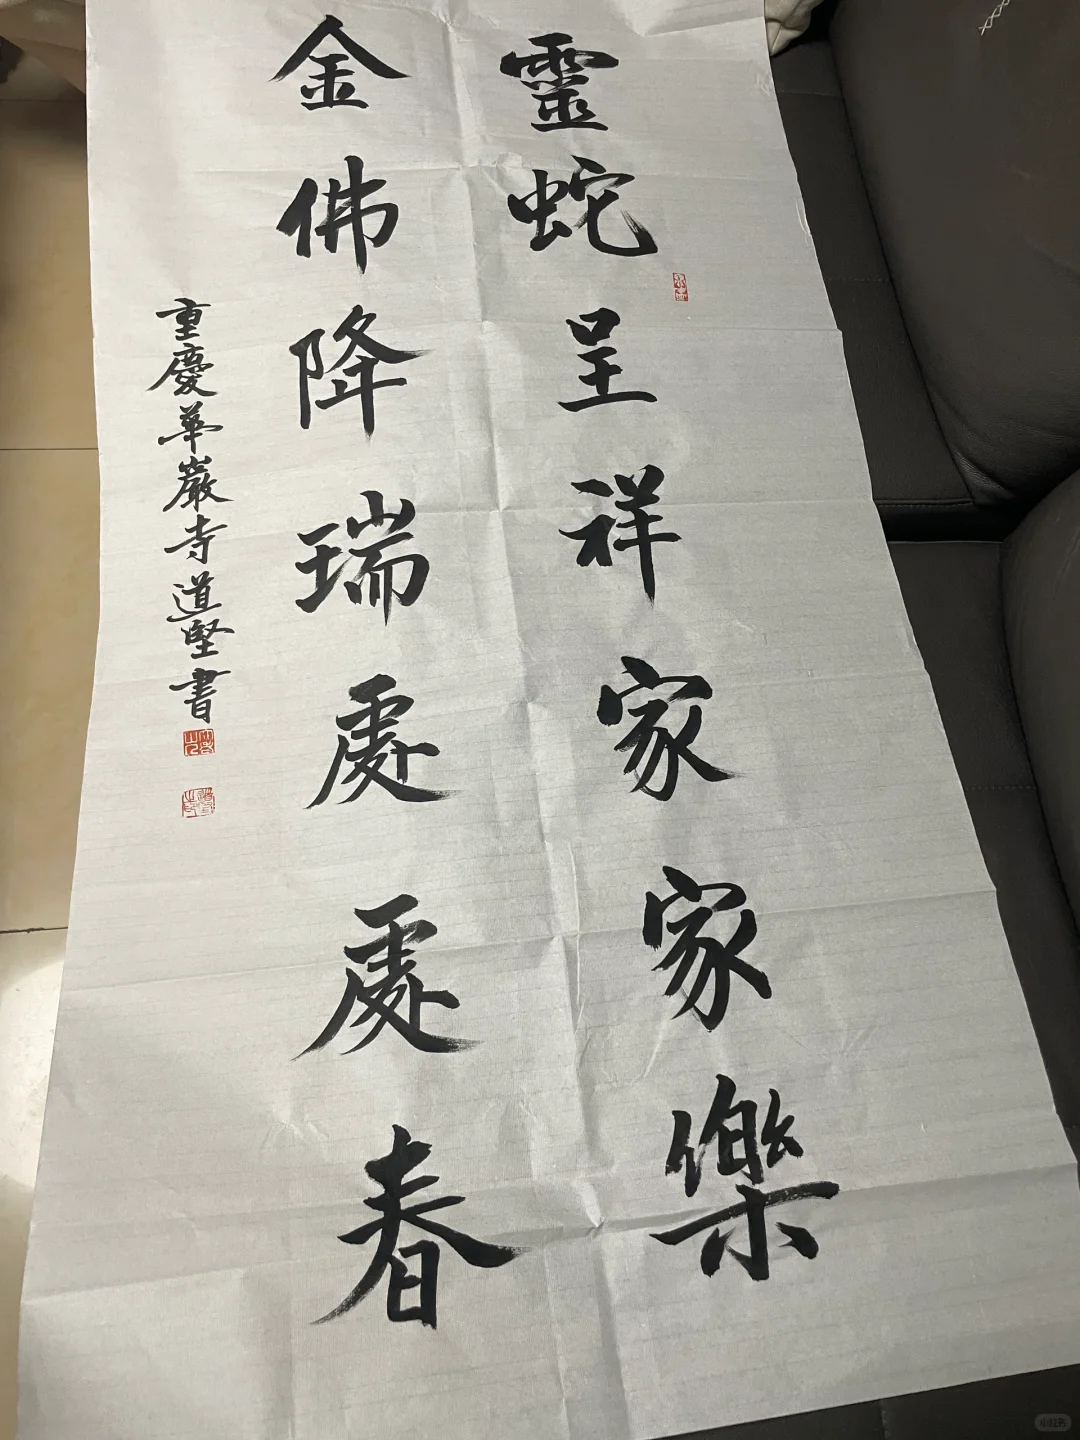 靈蛇呈祥家家樂
金佛降瑞處處春
重慶華巖寺道堅書
小红书